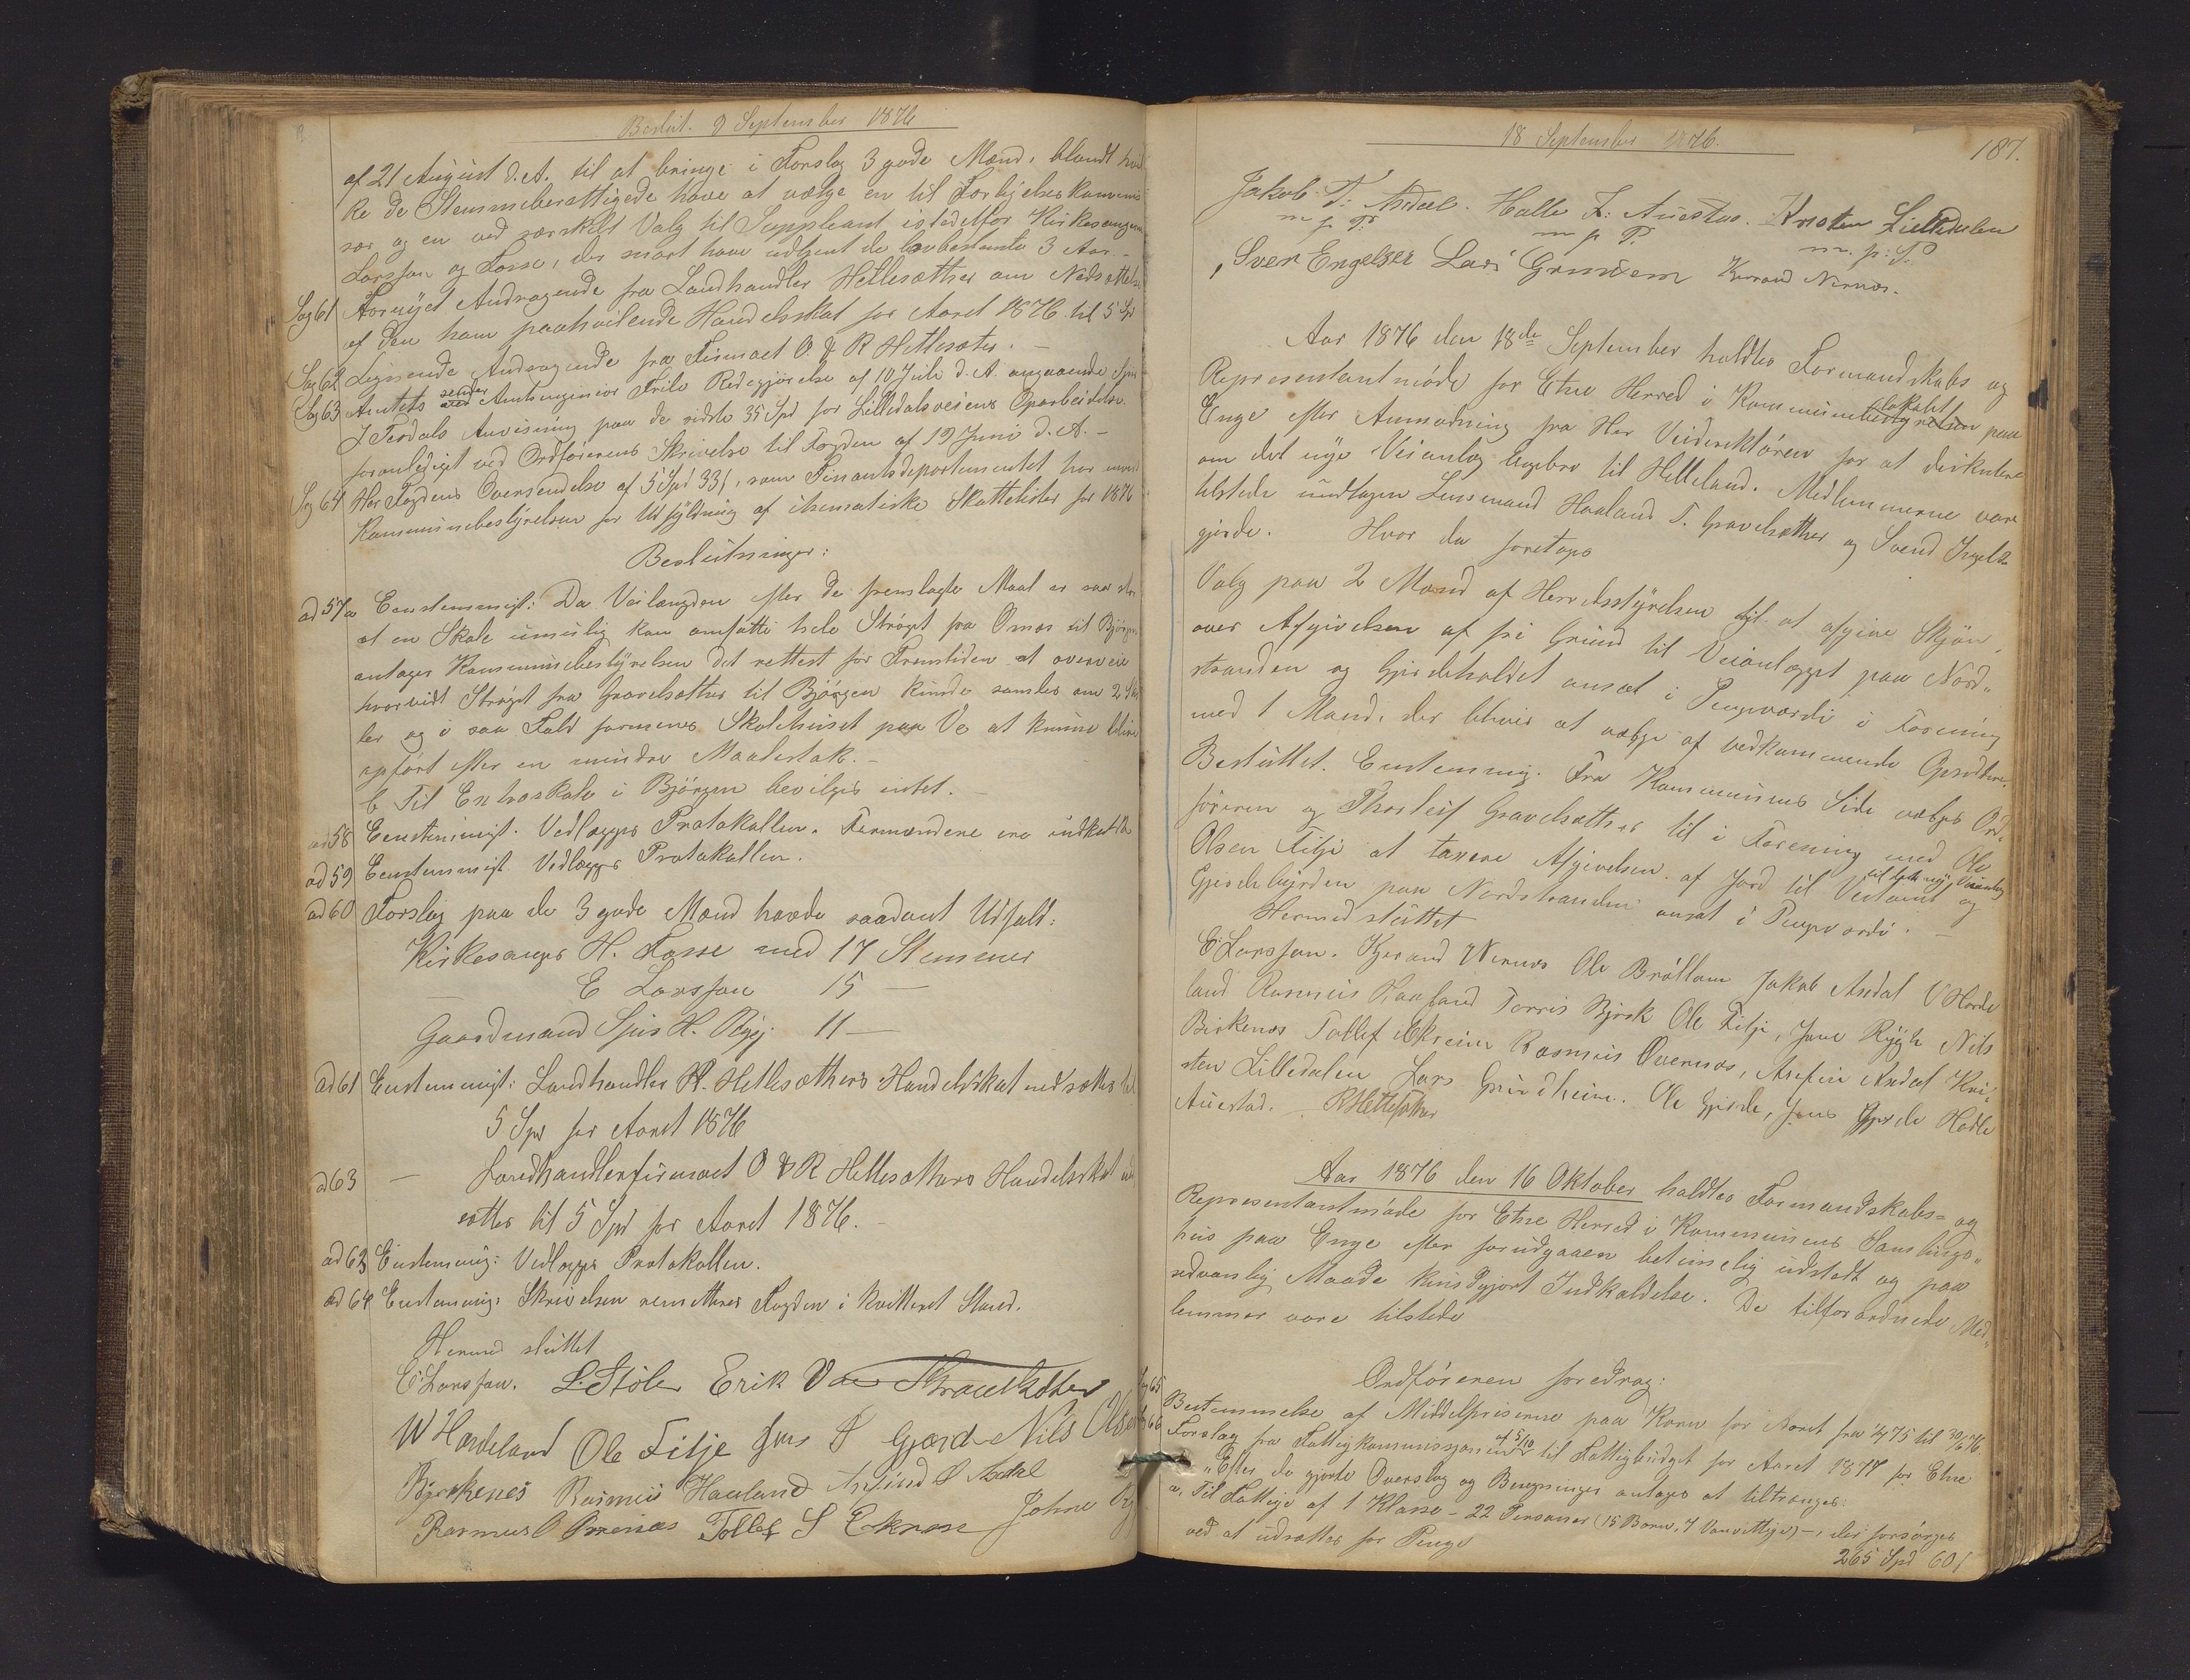 Beslut. 9 September 1876
af 21 August d. A. til at bringe i Forslag 3 gode Mænd, blandt hvil
ke de Stemmeberettigede have at vælge en til Forligelseskommis
sær og en ved særskilt Valg til Suppleant istedetfor Kirkesanger
Larsson og Fosse, der snart have udtjent de lovbestemte 3 Aar. –
Sag 61 Fornyet Andragende fra Landhandler Hetlesæther om Nedsættelse
af den ham paahvilende Handelsskat for Aaret 1876 til 5 Spd
Sag 62 Lignende Andragende fra Firmaet O. & R Hetlesæter. –
Sag 63 Amtets sender Amtsingeniør Friis Redegjørelse af 10 Juli d. A. angaaende
J Tesdals Anvisning paa de sidste 35 Spd for Lilledalsveiens Oparbeidelse
foranlediget ved Ordførerens Skrivelse til Fogden af 19 Juni d. A. –
Sag 64 Hr Fogdens Oversendelse af 5 Spd 33 s, som Finantsdepartementet har
Kommunebestyrelsen for Udfyldning af skematiske Skattelister for 1876
Beslutninger:
ad 57 a Eenstemmigt: Da Veilængden efter de fremlagte Maal er saa stor
at en Skole umulig kan omfatte hele Strøget fra Ornes til Bjørgen
antager Kommunebestyrelsen det rettest for Fremtiden at overveie
hvorvidt Strøget fra Gravelsæther til Bjørgen kunde samles om 2 Sko
ler og i saa Fald formenes Skolehuset paa Ve at kunne blive
opført efter en mindre Maalestok. –
b Til Extraskole i Bjørgen bevilges intet. –
ad 58 Eenstemmigt. Vedlægges Protokollen. Formændene ere indkaldte
ad 59 Eenstemmigt Vedlægges Protokollen.
ad 60 Forslag paa de 3 gode Mænd havde saadant Udfald:
Kirkesanger H. Fosse med 17 Stemmer
– E Larsson 15 –
Gaardmand Sjur H. Rygg 11 –
ad 61 Enstemmigt: Landhandler H. Hetlesæthers Handelsskat nedsættes til
5 Spd for Aaret 1876
ad 63 – Landhandlerfirmaet O & R Hetlesæthers Handelsskat ned
sættes til 5 Spd for Aaret 1876. –
ad 63 Enstemmig: Vedlægges Protokollen.
ad 64 Enstemmig: Skrivelsen remitteres Fogden i kvitteret Stand.
Hermed sluttet
E Larsson. L. Støle Erik Vae
W Hardeland Ole Filje Jens O Gjerde Nils Olsen
Bjerkenes Rasmus Haaland Arfind O Axdal
Rasmus O Øvrenæs Tollef S Ekren Johne

18 September 1876.
187.
Jakob T: Axdal. Halle L: Auestad. Kristen Lilledalen
m p P. m p P. m. p: P.
Sven Engelsen Lars Grindem Kjerand Nernæs.
Aar 1876 den 18de September holdtes Formandskabs og
Representantmøde for Etne Herred i Kommunelokalet paa
Enge efter Anmodning fra Hr Veidirektøren for at diskutere
om det nye Veianlæg Engebro til Helleland. Medlemmerne vare
tilstede undtagen Lensmand Haaland T. Gravelsæther og Svend Ingels
gjerde. Hvor da foretoges
Valg paa 2 Mænd af Herredsstyrelsen til at afgive Skjøn
over Afgivelsen af fri Grund til Veianlægget paa Nord„
stranden og Gjerdeholdet ansat i Pengeværdi i Forening
med 1 Mand, der bliver at vælge af vedkommende Opsidere.
Besluttet. Enstemmig. Fra Kommunens Side vælges Ord„
føreren og Thorleif Gravelsæther til i Forening med Ole
Olsen Filje at taxere Afgivelsen af Jord til Veitomt og
til dette nye Veianlæg
Gjerdebyrden paa Nordstranden ansat i Pengeværdi. –
Hermed sluttet
E Larsson. Kjerand Nernæs Ole Brattam Jakob Axdal W Harde
land Rasmus Haaland Torris Bjørk Ole Filje, Jone Rygg Nils
Birkenæs Tollef Ekrene Rasmus Øvrenæs, Arfin Axdal Kri„
sten Lilledalen Lars Grindheim. Ole Gjerde, Jens Gjerde Halle
Auestad. R Hetlesæther
Aar 1876 den 16 Oktober holdtes Formandskabs- og
Representantmøde for Etne Herred i Kommunens Samlings„
hus paa Enge efter forudgaaen betimelig udstedt og paa
sedvanlig Maade kundgjort Indkaldelse. De tilforordnede Med„
lemmer vare tilstede
Ordføreren foredrog:
Sag 65 Bestemmelse af Middelpriserne paa Korn for Aaret fra 1/7 75 til 30/6 76.
66 Forslag fra Fattigkommissionen af 5/10 til Fattigbudget for Aaret 1877 for Etne
„Efter de gjorte Overslag og Beregninger antages at tiltrenges:
a, Til Fattige af 1 Klasse – 22 Personer (15 Børn, 7 Vanvittige) –, der forsørges
ved at udsættes for Penge
265 Spd 60 s